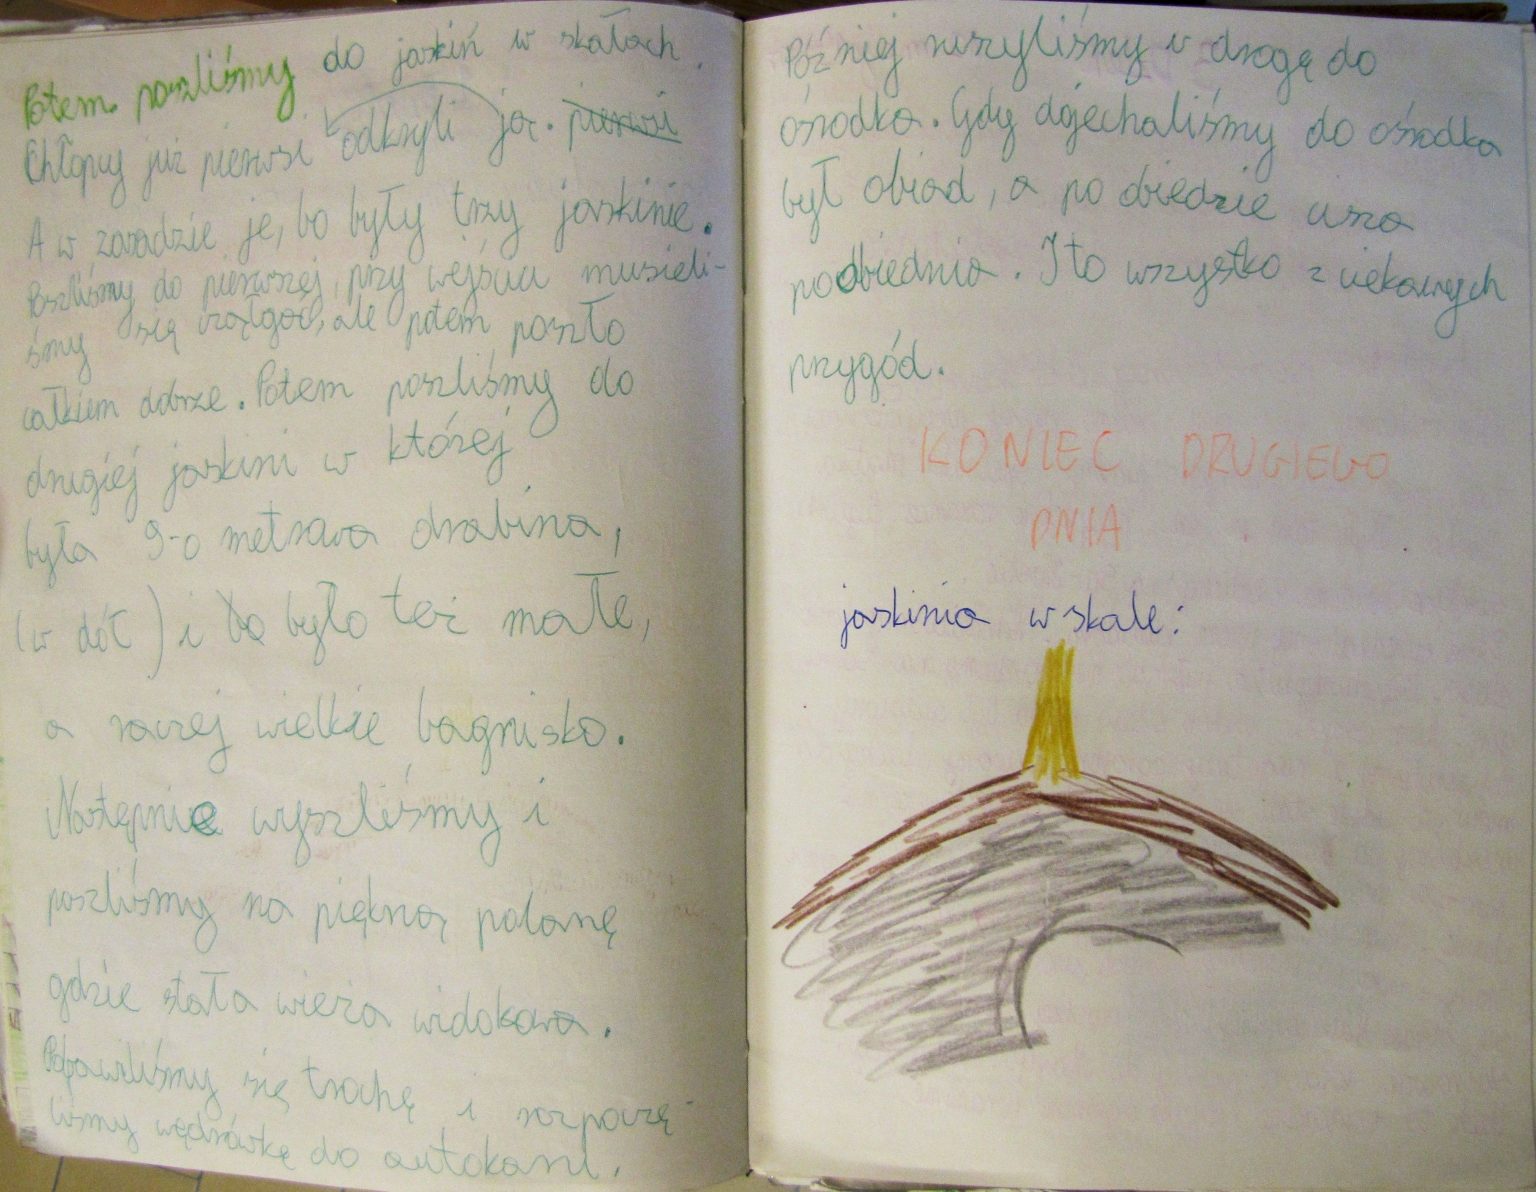 Potem poszliśmy do jaskiń w skałach.
Chłopcy już pierwsi odkryli ją. pierwsi
A w zasadzie je, bo były trzy jaskinie.
Poszliśmy do pierwszej, przy wejściu musieli-
śmy się czołgać, ale potem poszło
całkiem dobrze. Potem poszliśmy do
drugiej jaskini w której
była 9-o metrowa drabina,
(w dół) i było też małe,
a raczej wielkie bagnisko.
Następnie wyszliśmy i
poszliśmy na piękną polanę
gdzie stała wieża widokowa.
Pobawiliśmy się trochę i rozpoczę-
liśmy wędrówkę do autokaru.
Później ruszyliśmy w drogę do
ośrodka. Gdy dojechaliśmy do ośrodka
był obiad, a po obiedzie cisza
poobiednia. I to wszystko z ciekawych
przygód.
KONIEC DRUGIEGO
DNIA
jaskinia w skale: